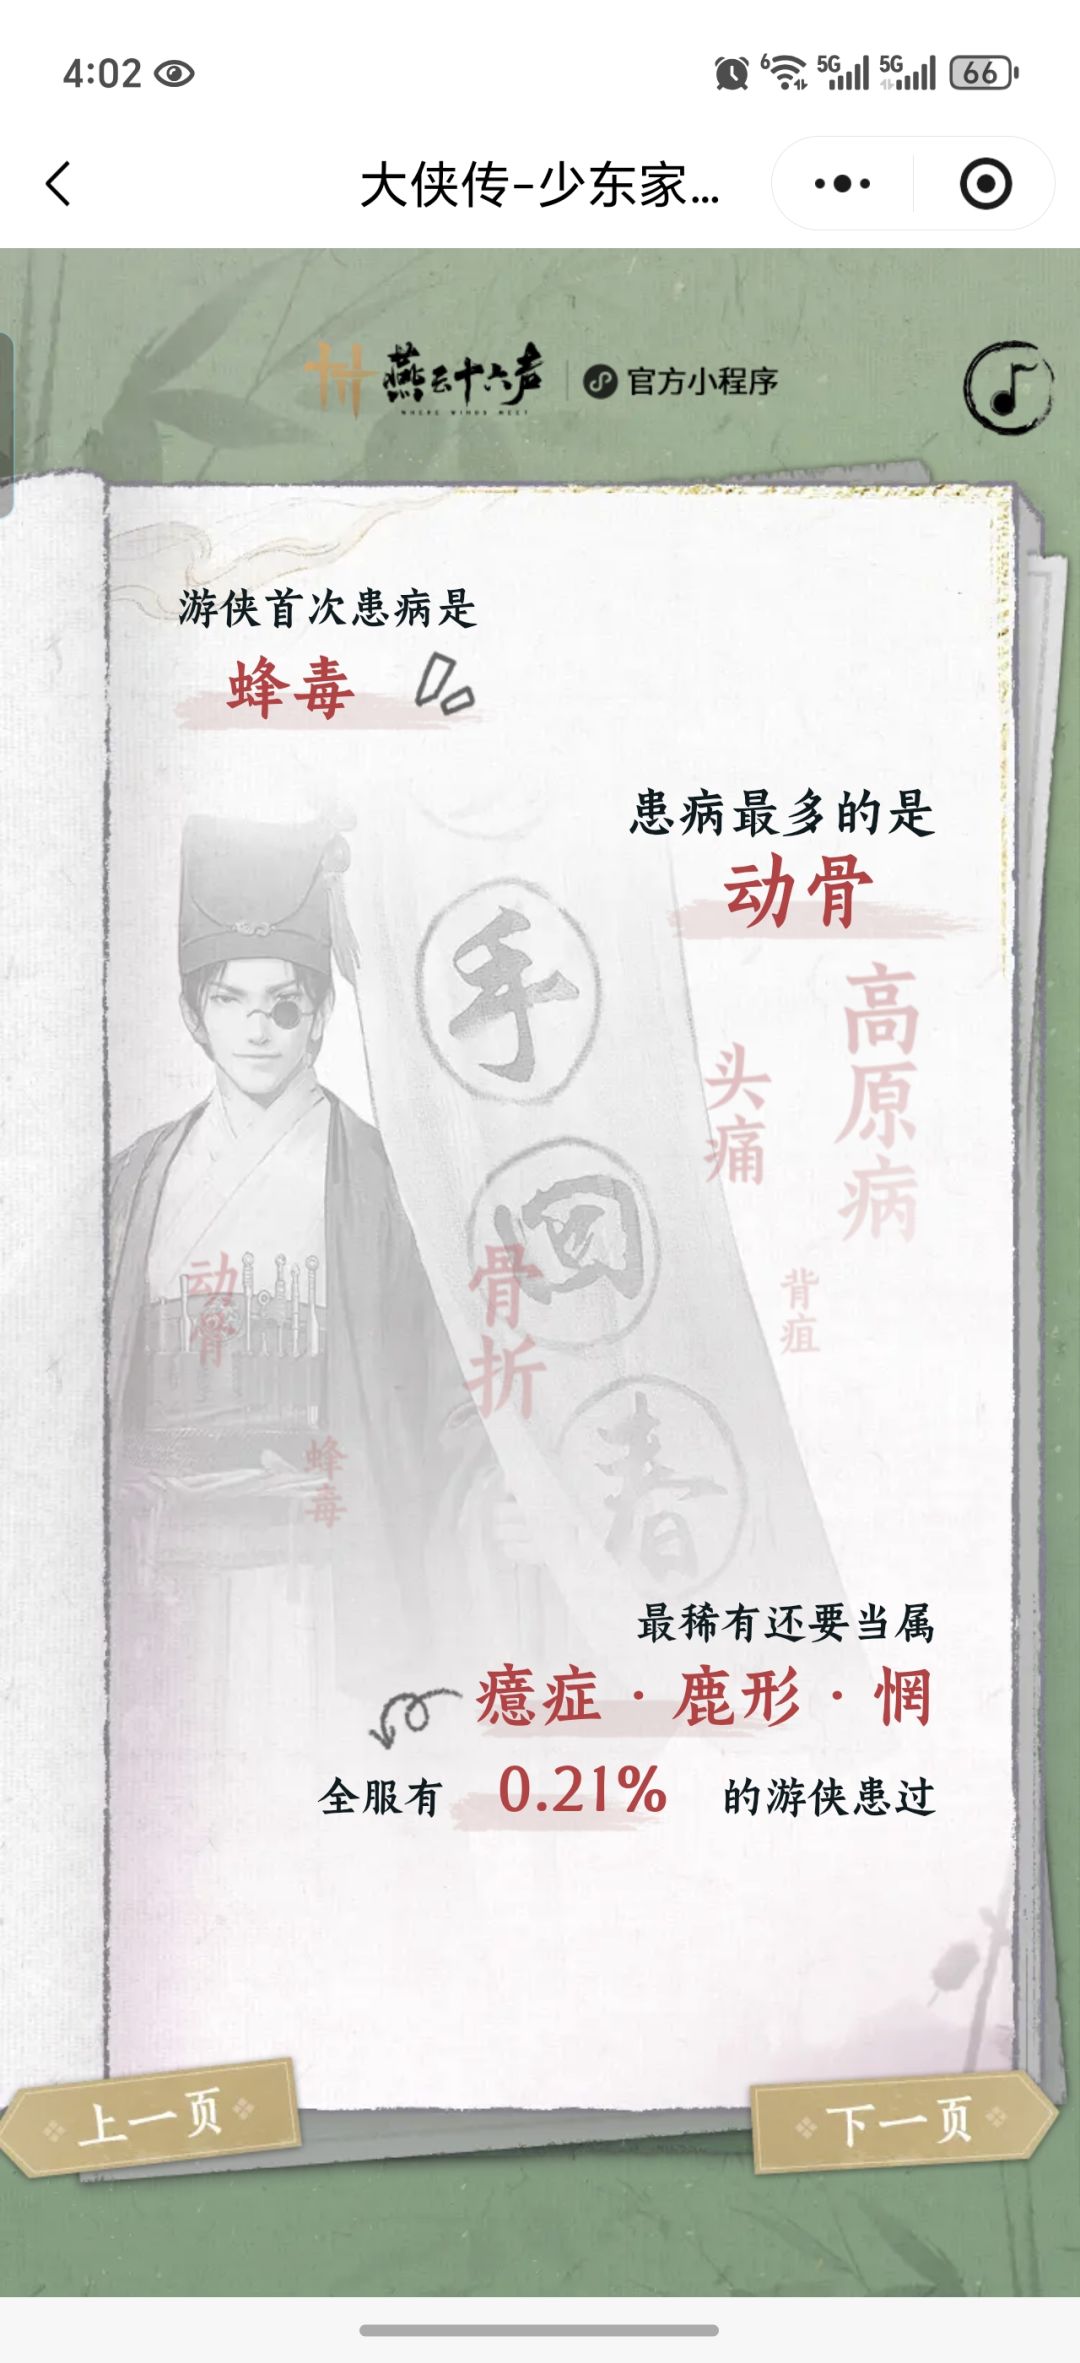 4:02
6 5G 5G 66
大侠传-少东家...
燕云十六声 官方小程序
WHERE WINDS MEET
游侠首次患病是
蜂毒
患病最多的是
动骨
高原病
头痛
手
回
春
动骨
骨折
背疽
蜂毒
最稀有还要当属
癔症·鹿形·惘
全服有 0.21% 的游侠患过
上一页
下一页